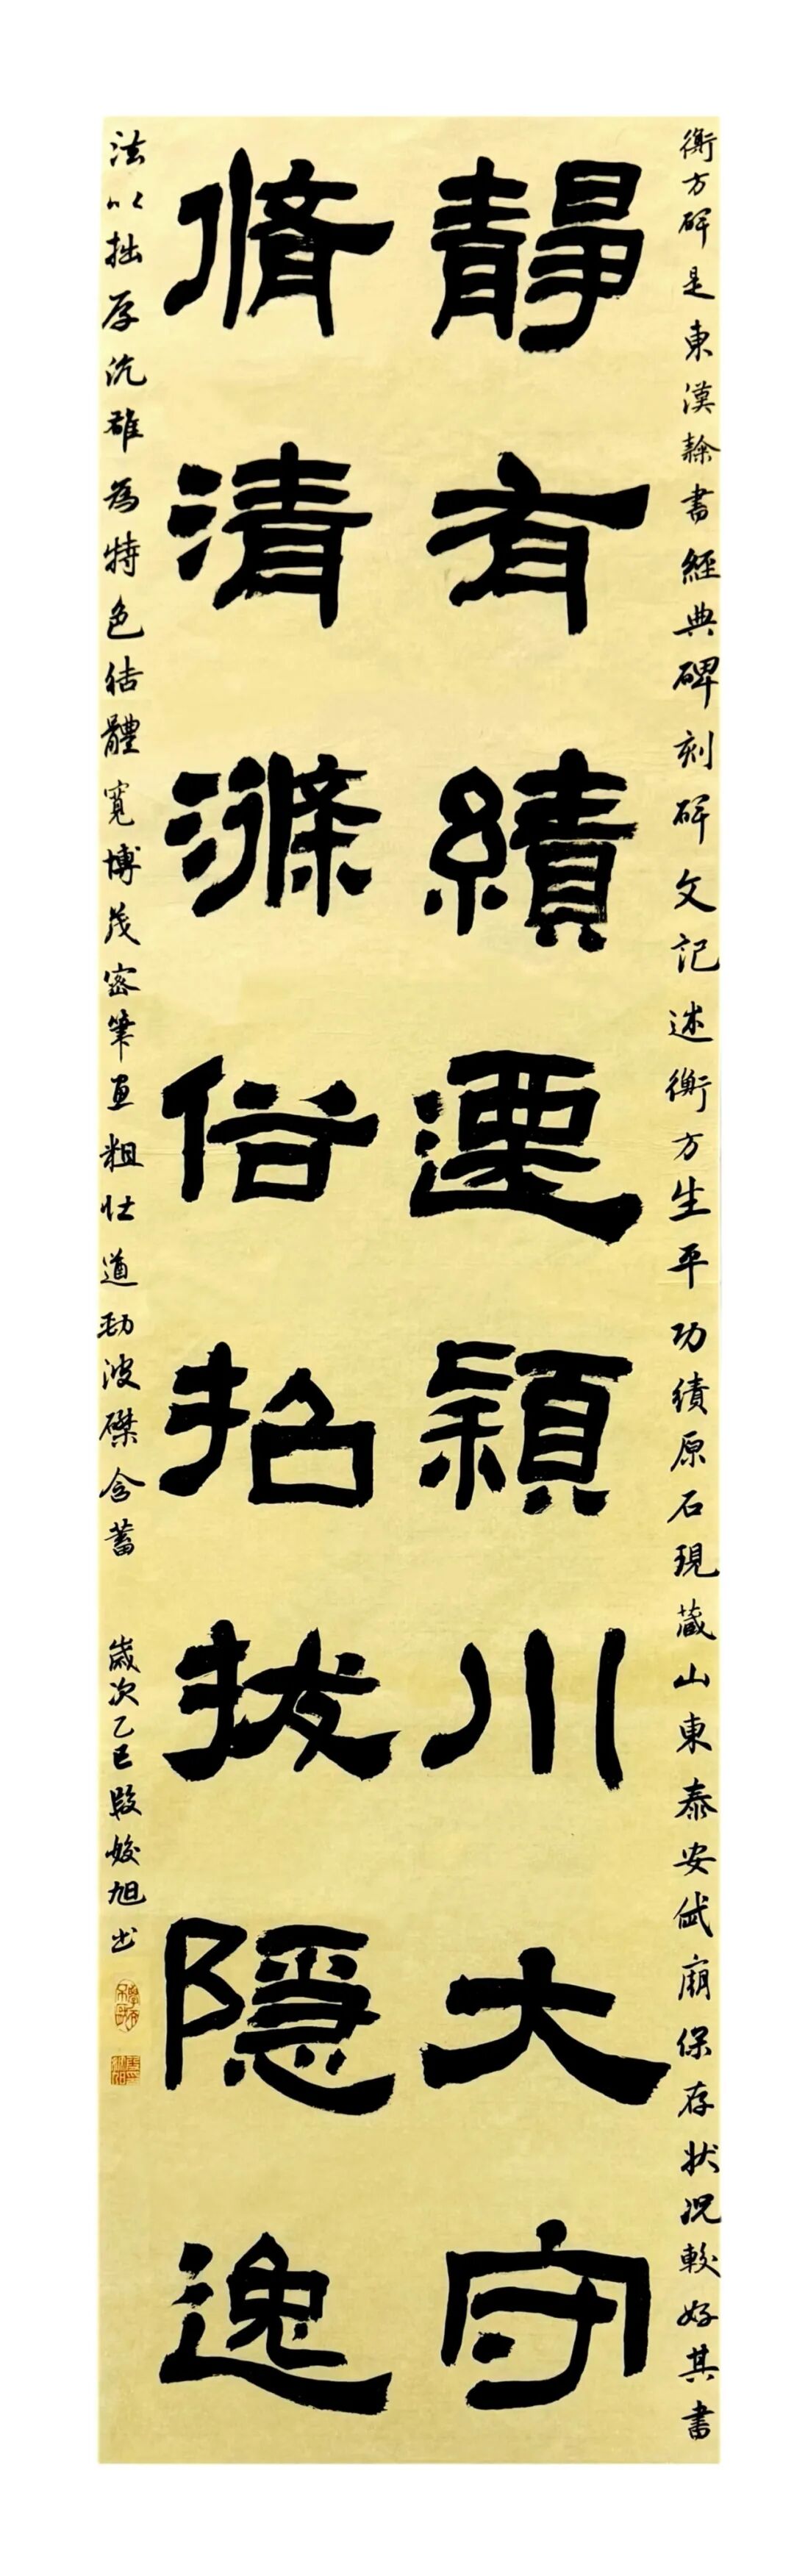 衡方碑是東漢隸書經典碑刻碑文記述衡方生平功績原石現藏山東泰安岱廟保存状況較好其書
靜有績遷潁川大守
脩清滌俗招拔隱逸
法以拙厚沉雄為特色结體寬博茂密筆画粗壮遒劲波磔含蓄
歲次乙巳段姣旭书